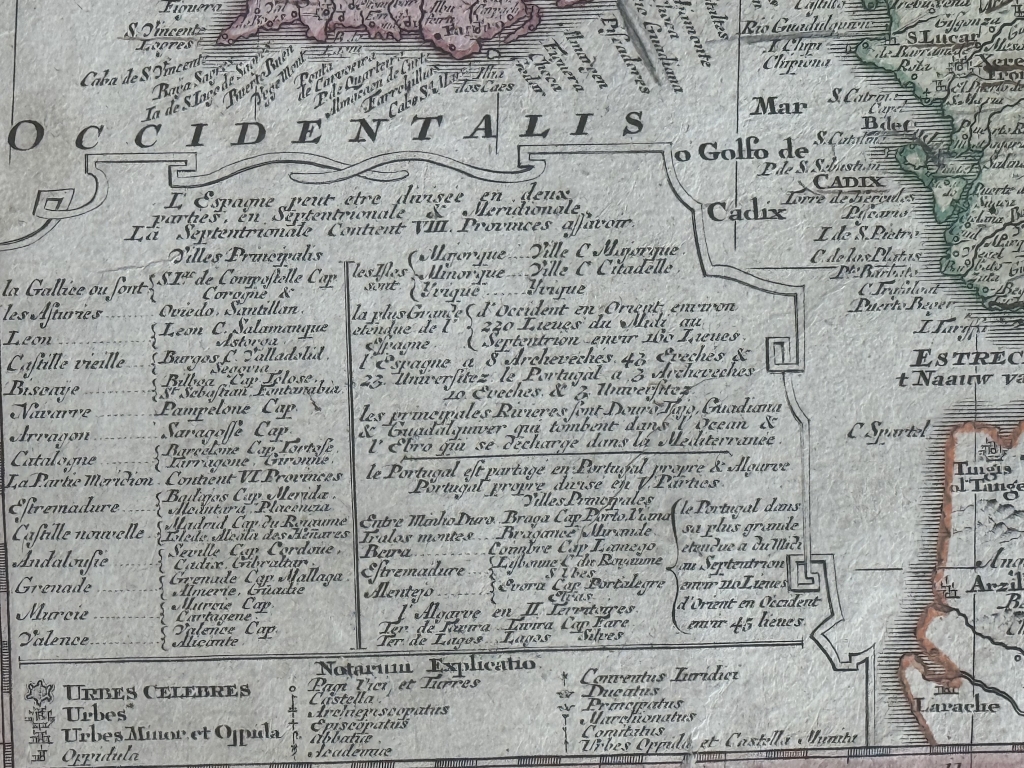 Figuera
S. Vincente
Logres
Caba de S. Vincente
OCCIDENTALIS
dos Caes
Rio Guadalquivir
S. Lucar
I. Chipi
Chipiona
Rota
Mar
o Golfo de
Cadix
S. Catalin
P. de S. Sebastian
CADIX
Torre de Hercules
I. de S. Pietro
C. de los Platas
Puerto Beger
I. Tariffa
ESTREC
t Naauw va
C. Spartel
Tingis
ol Tange
Arzil
Larache
L'Espagne peut etre divisee en deux
parties, en Septentrionale & Meridionale
La Septentrionale Contient VIII. Provinces assavoir
Villes Principalis
la Gallice ou sont S. Iac. de Compostelle Cap
Corogne &
les Asturies Oviedo, Santillan.
Leon Leon C. Salamanque
Astorga
Castille vieille Burgos C. Valladolid.
Segovia
Biscaye Bilboa Cap. Tolose.
St Sebastian, Fontarabia
Navarre Pampelone Cap.
Arragon Saragosse Cap.
Catalogne Barcelone Cap Tortose
Tarragone, Gironne.
La Partie Meridion. Contient VI Provinces
Estremadure Badajos Cap. Merida.
Alcantara, Placencia
Castille nouvelle Madrid Cap du Royaume
Tolede Alcala des Henares
Andalousie Seville Cap. Cordoue,
Cadix, Gibraltar
Grenade Grenade Cap. Mallaga.
Almerie, Guadie
Murcie Murcie Cap.
Cartagene.
Valence Valence Cap.
Alicante
les Isles sont
Majorque Ville C Majorque
Minorque Ville C Citadelle
Yvique Yvique
la plus Grande etendue de l'Espagne
d'Occident en Orient, environ
220 Lieues du Midi au
Septentrion envir 160 Lieues.
l'Espagne a 8 Archeveches. 45 Eveches &
23 Universitez le Portugal a 3 Archeveches
10 Eveches & 2 Universitez
les principales Rivieres sont Douro Tajo, Guadiana
& Guadalquiver qui tombent dans l'Ocean &
l'Ebro qui se decharge dans la Mediterranee.
le Portugal est partage en Portugal propre & Algarve
Portugal propre divise en V. Parties.
Villes Principales
Entre Minho Duro Braga Cap Porto. Viana
Tralos montes Bragance Mirande
Beira Coimbre Cap Lamego
Estremadure Lisbonne C du Royaume
S Ubes
Alentejo Evora Cap. Portalegre
Elvas
l'Algarve en II Territoires
Ter. de Tavira Tavira Cap Fare
Ter. de Lagos Lagos Silves
le Portugal dans
sa plus grande
etendue a du Midi
au Septentrion
envir 110 Lieues
d'Orient en Occident
envir 45 lieues
Notarum Explicatio
URBES CELEBRES
Urbes
Urbes Minor. et Oppida
Oppidula
Pagi Vici, et Turres
Castella
Archiepiscopatus
Episcopatus
Abbatiæ
Academiæ
Conventus Iuridici
Ducatus
Principatus
Marchionatus
Comitatus
Urbes Oppida et Castella Munita